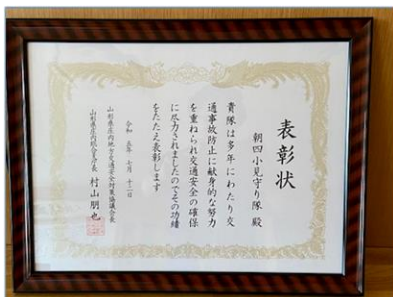 表彰状
朝四小見守り隊 殿
貴隊は多年にわたり交
通事故防止に献身的な努力
を重ねられ交通安全の確保
に尽力されましたのでその功績
をたたえ表彰します
令和 五年 七月 十二日
山形県庄内地方交通安全対策協議会会長
山形県庄内総合支庁長 村山朋也